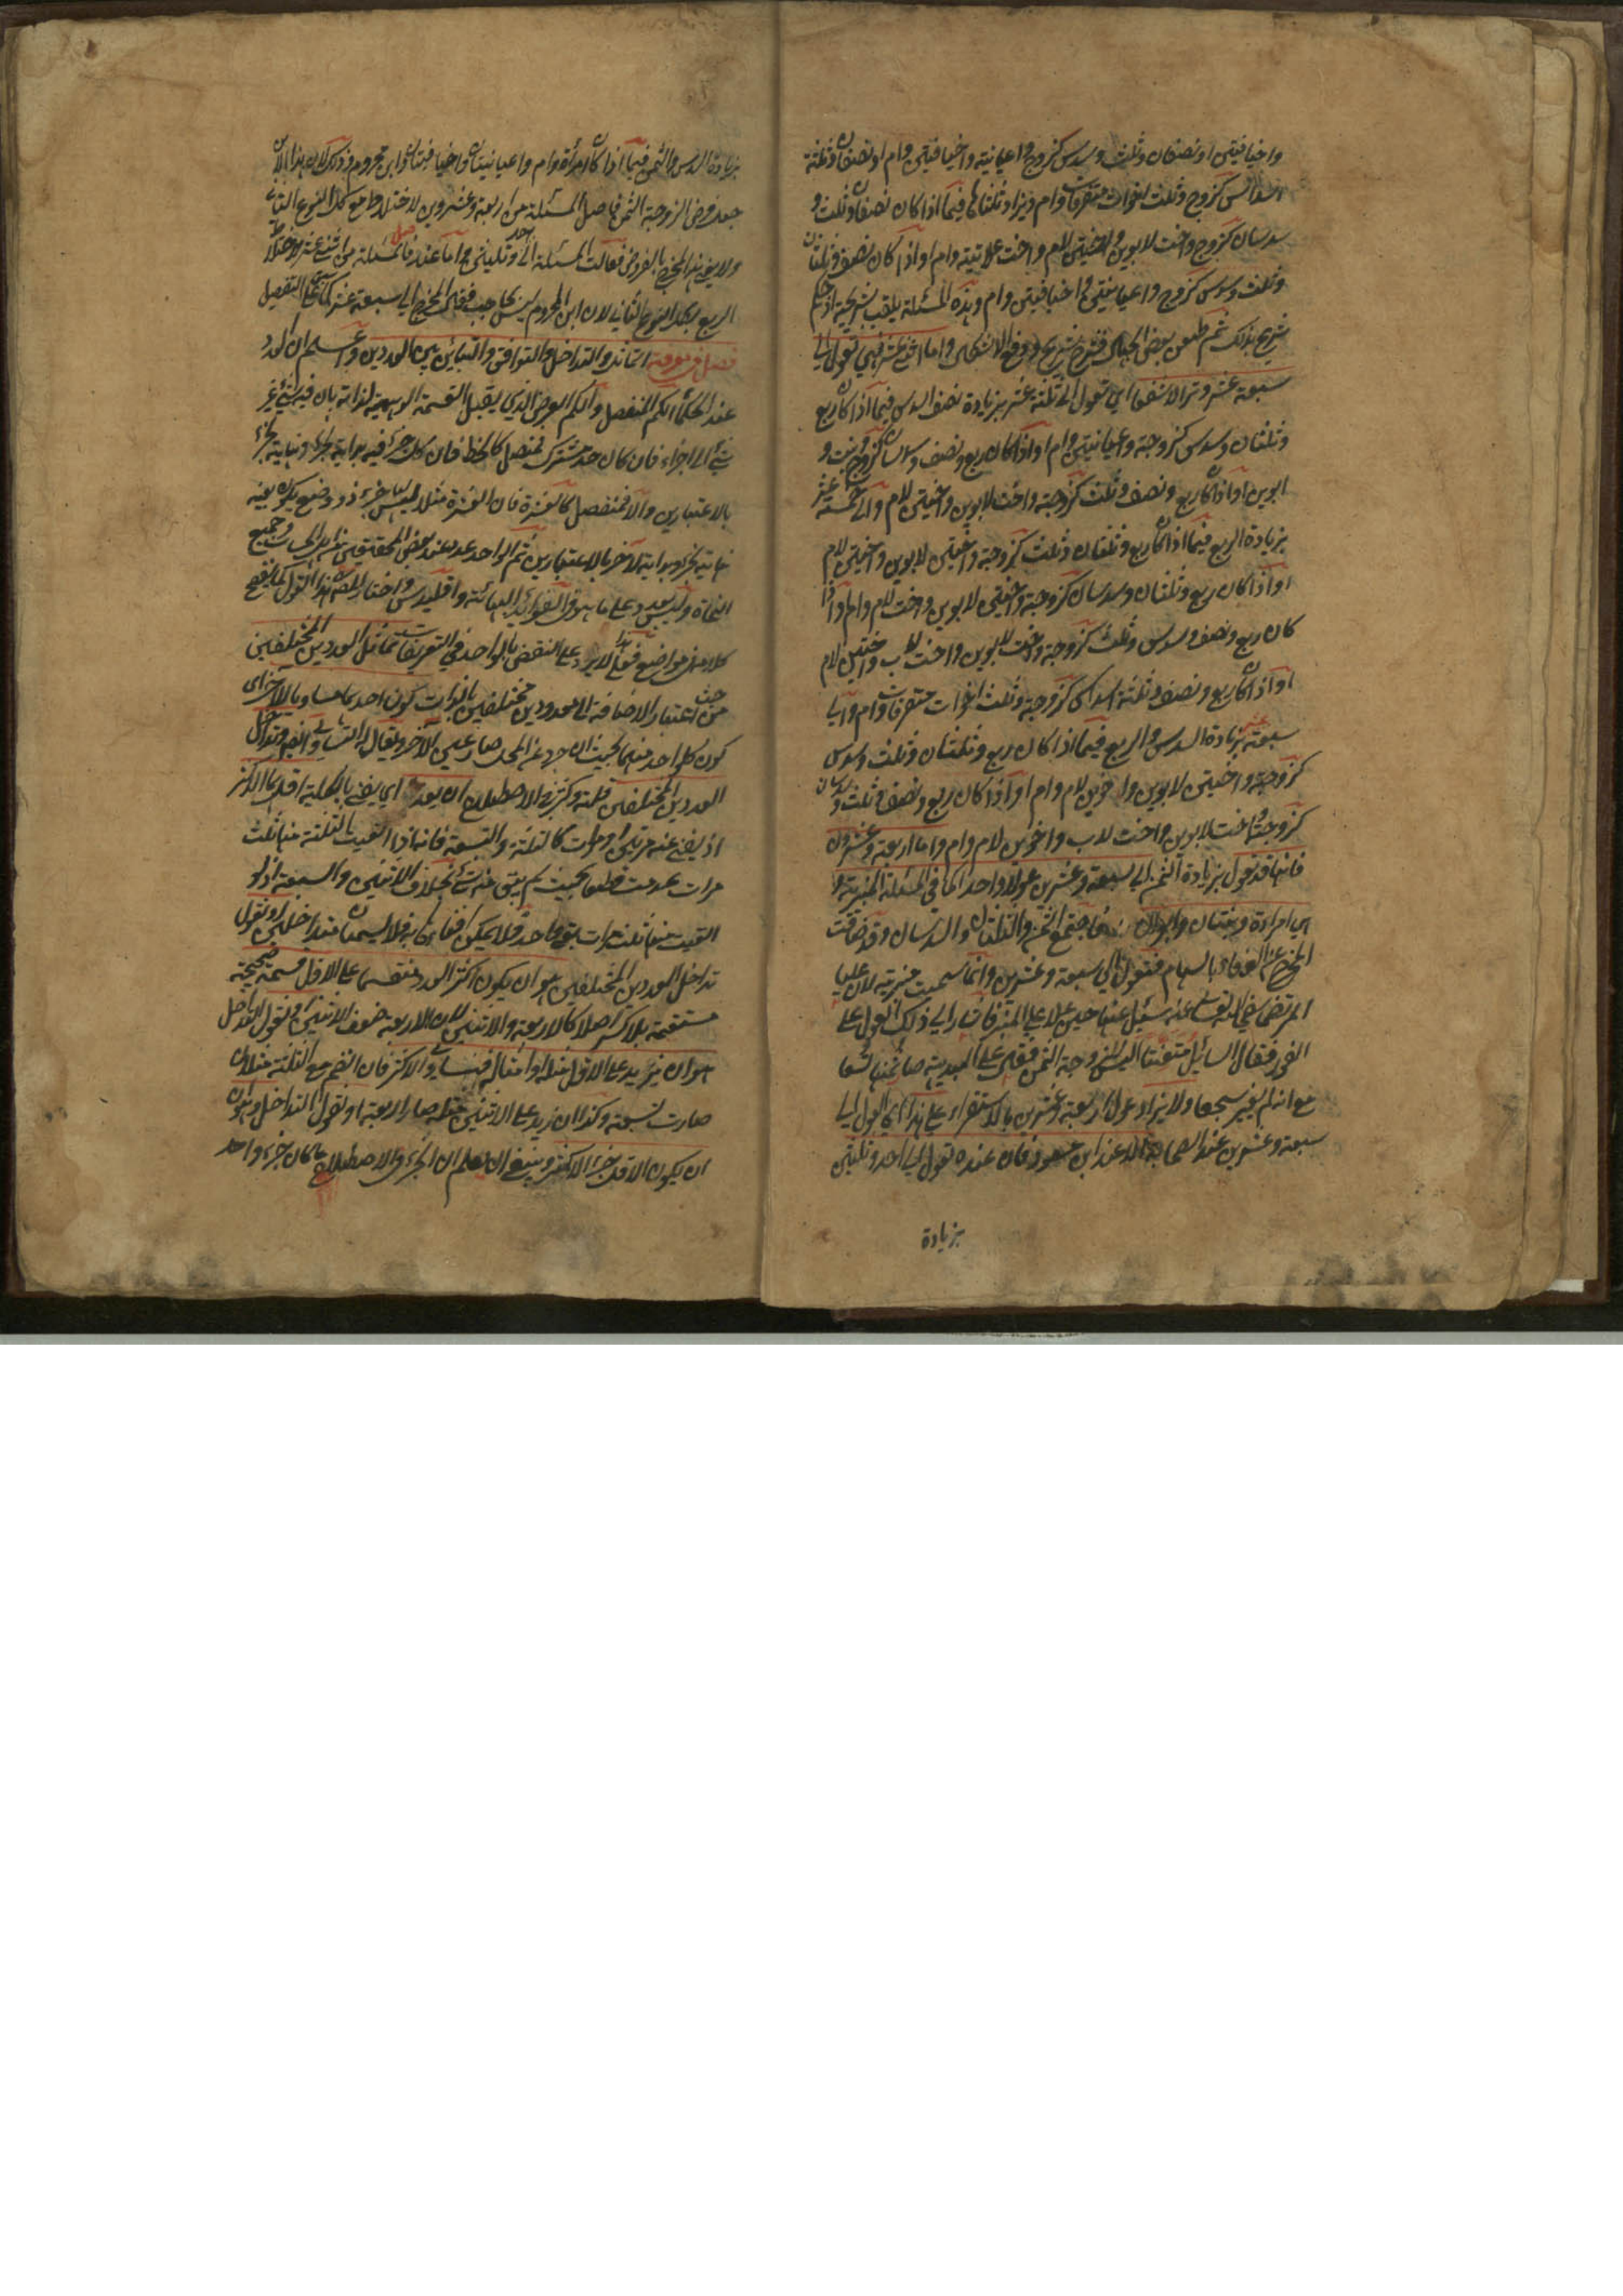 واخيافيتين او نصفان وثلث وسدس كزوج واعيانية واخيافيتين وام او نصفان وثلثة
اسداس كزوج وثلث اخوات متفرقات وام ويزاد ثلثاها فيما اذا كان نصفان وثلث و
سدسان كزوج واخت لابوين واختين لام واخت علاتية وام او اذا كان نصف وثلثان
وثلث وسدس كزوج واعيانيتين واخيافيتين وام وهذه المسئلة يلقب بشريحية اذ حكم
شريح بذلك ثم طعن بعض الجهال فشرح شريح ودفع الاشكال واما اثنى عشر فهي تعول الى
سبعة عشر وترا لا شفعا اي تعول الى ثلثة عشر بزيادة نصف السدس فيما اذا كان ربع
وثلثان وسدس كزوجة واعيانيتين وام او اذا كان ربع ونصف وسدسان كزوج وبنت و
ابوين او اذا كان ربع ونصف وثلث كزوجة واخت لابوين واختين لام والى خمسة عشر
بزيادة الربع فيما اذا كان ربع وثلثان وثلث كزوجة واختين لابوين واختين لام
او اذا كان ربع وثلثان وسدسان كزوجة واختين لابوين واخت لام وام او اذا
كان ربع ونصف وسدس وثلث كزوجة واخت لابوين واخت لاب واختين لام
او اذا كان ربع ونصف وثلثة اسداس كزوجة وثلث اخوات متفرقات وام والى
سبعة عشر بزيادة السدس والربع فيما اذا كان ربع وثلثان وثلث وسدس
كزوجة واختين لابوين واخوين لام وام او اذا كان ربع ونصف وثلث وسدسان
كزوجة واخت لابوين واخت لاب واخوين لام وام واما اربعة وعشرون
فانها قد تعول بزيادة الثمن الى سبعة وعشرين عولا واحدا كما في المسئلة المنبرية و
هي امرأة وبنتان وابوان فاجتمع الثمن والثلثان والسدسان وقد ضاقت
المخرج عن الوفاء بالسهام فتعول الى سبعة وعشرين وانما سميت منبرية لان عليا
المرتضى رضي الله تعالى عنه سئل عنها حين علا على المنبر فاشار الى ذلك العول على
الفور فقال السائل متعنتا اليس للزوجة الثمن فقال على البديهة صار ثمنها تسعا
مع انه لم يغير سجعها ولا يزاد عول اربعة وعشرين بالاستقراء على هذا اي العول الى
سبعة وعشرين عند الصحابة الا عند ابن مسعود فان عنده تعول الى احد وثلثين
بزيادة
بزيادة السدس والثمن فيما اذا كان امرأة وام واعيانيتان واخيافيتان وابن محروم وذلك لان هذا الابن
جعل فرض الزوجة الثمن فاصل المسئلة من اربعة وعشرين لاختلاطه مع كل النوع الثاني
ولا يفي هذا المخرج بالفروض فعالت المسئلة الى احد وثلثين واما عندنا فاصل المسئلة من اثني عشر لاختلاط
الربع بكل النوع الثاني لان ابن المحروم ليس بحاجب فعال المخرج الى سبعة عشر كما سبق على التفصيل
فصل في معرفة التماثل والتداخل والتوافق والتباين بين العددين واعلم ان العدد
عند الحكماء الكم المنفصل والكم العرض الذي يقبل القسمة الوهمية لذاته بان فيه شيء غير
شيء الى اجزاء فان كان حد مشترك فمتصل كالخط فان كل جزء فيه بداية لجزء ونهاية لجزء
بالاعتبارين والا فمنفصل كالعشرة فان العشرة مثلا ليس جزء ذو وضع يكون بعينه
نهاية لجزء وبداية لآخر بالاعتبارين ثم الواحد عدد عند بعض المحققين من اهل الحساب وجميع
النحاة وليس بعدد على ما هو في الفوائد البهائية واقليدس واختار المصنف هذا القول كما يفصح
كلامه في مواضع فعلى هذا لا يرد على النقض بالواحد في التعريفات تماثل العددين المختلفين
من حيث اعتبار الاضافة الى معدودين مختلفين بالذات كون احدهما مساويا للآخر اي
كون كل واحد منهما بحيث ان جرد عن المحل صار عين الآخر ويقال له التساوي ايضا وتداخل
العددين المختلفين قلة وكثرة في الاصطلاح ان يعد اي يفني بالكلية اقلهما الاكثر
اذ يفني عنه مرتين او مرات كالثلثة والتسعة فانه اذا القيت الثلثة منها ثلث
مرات عدمت قطعا بحيث لم يبق منه شيء بخلاف الاثنين والسبعة اذ لو
القيت منها ثلث مرات بقي واحد فلا يمكن افناؤها به فلا يسميان متداخلين او نقول
تداخل العددين المختلفين هو ان يكون اكثر العدد منقسما على الاقل قسمة صحيحة
مستقيمة بلا كسر اصلا كالاربعة والاثنين لان الاربعة ضعف الاثنين ونقول التداخل
هو ان يزيد على الاقل مثله او امثاله فيساوي الاكثر فان انضم مع الثلثة مثلاه
صارت تسعة وكذا ان زيد على الاثنين مثله صار الاربعة او نقول التداخل هو
ان يكون الاقل جزء الاكثر وينبغي ان يعلم ان الجزء في الاصطلاح ما كان جزء واحد